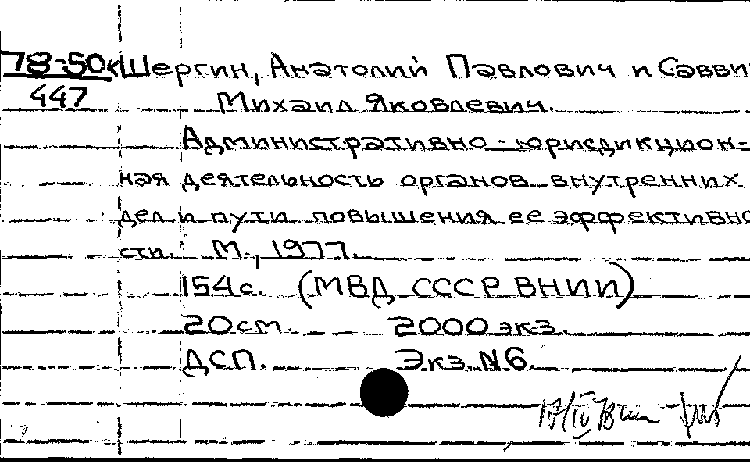 78-50к Шергин, Анатолий Павлович и Савви
447 Михаил Яковлевич.
Административно-юрисдикцион-
ная деятельность органов внутренних
дел и пути повышения ее эффективно
сти. М., 1977.
154с. (МВД СССР ВНИИ)
20см. 2000 экз.
ДСП. Экз. N6.